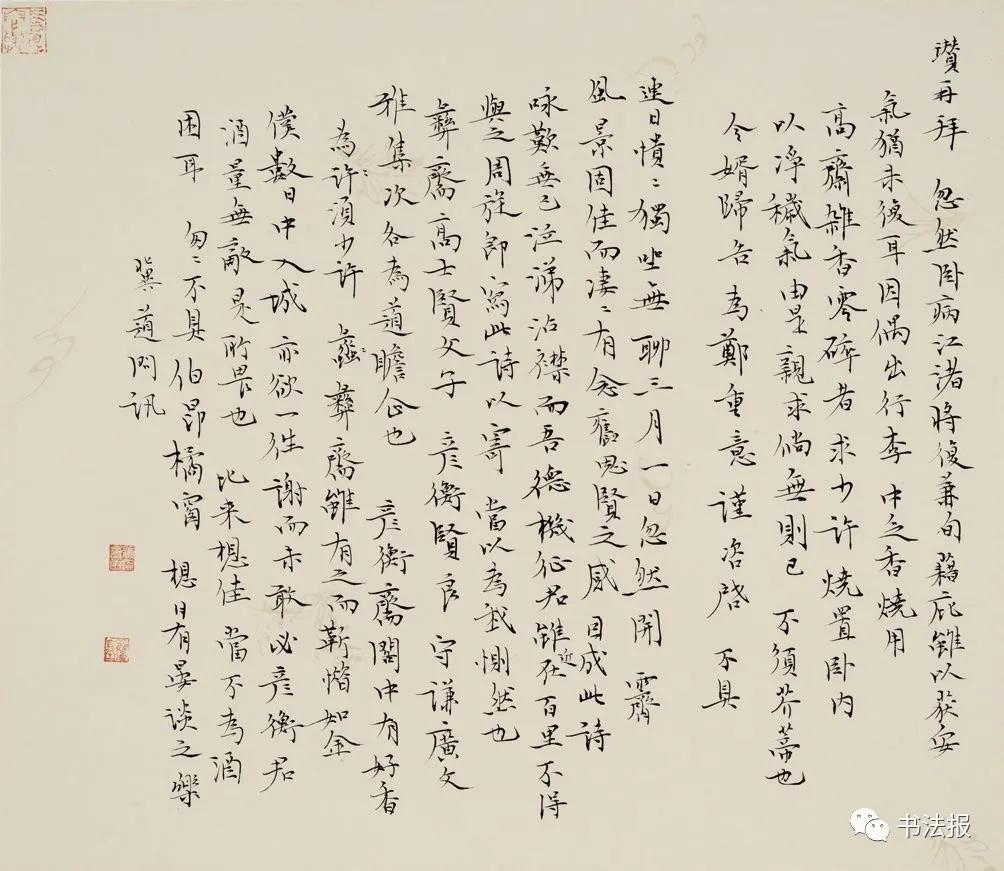 瓚再拜 忽然卧病江渚將復兼旬藉庇雖以获安
氣猶未復耳因偶出行李中之香燒用
高齋雜香零碎者求少许燒置卧内
以净穢氣由是親求倘無則已 不須芥蒂也
令婿歸告為鄭重意謹咨啓 不具
連日憒〻獨坐無聊三月一日忽然開霽
風景固佳而凄〻有念舊思賢之感 因成此詩
咏歎無已泣涕沾襟而吾德機征君雖近在百里不得
與之周旋即寫此詩以寄 當以為我惻然也
彝齋高士賢父子 彦衡賢良 守謙廣文
雅集次各為道瞻企也 彦衡齋閣中有好香
為许須少许 彝齋雖有之而靳惜如金
僕數日中入城 亦欲一往謝而未敢必彦衡君
酒量無敵是所畏也 比来想佳 當不為酒
困耳 匆〻不具伯昂橘甯 想日有晏談之樂
冀道問訊
书法报